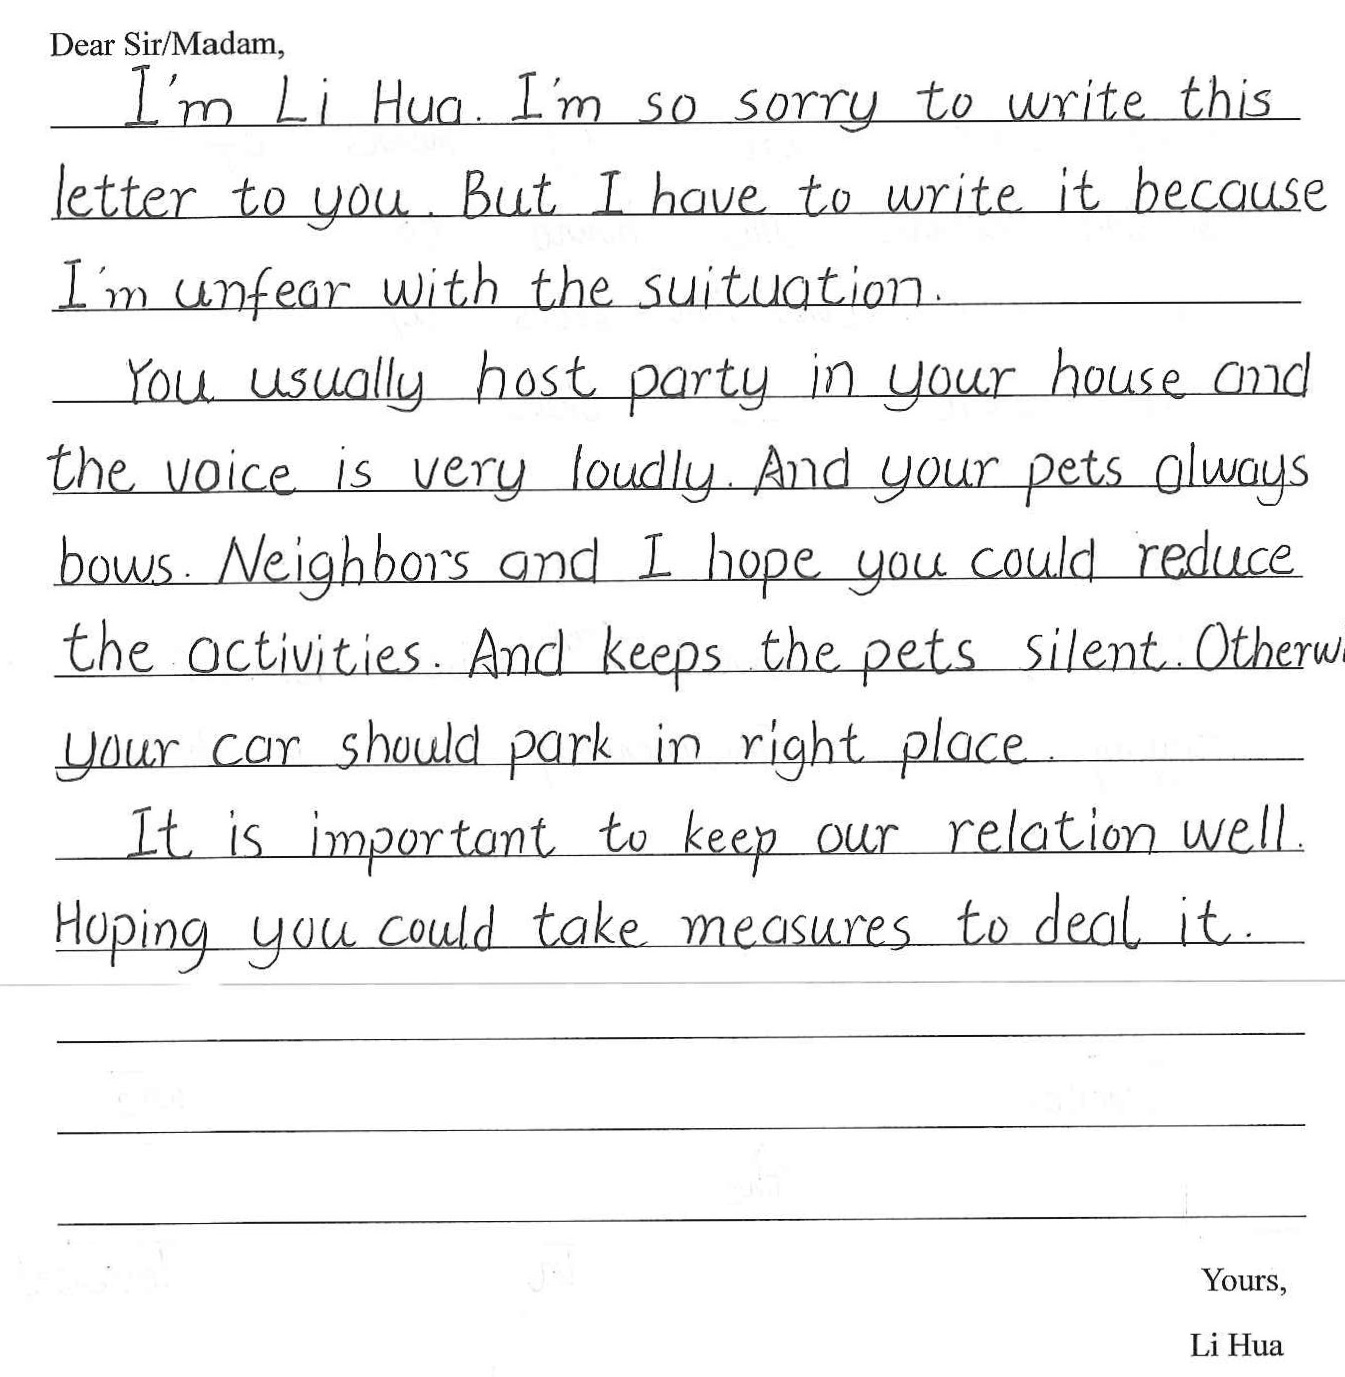 Dear Sir/Madam,
I'm Li Hua. I'm so sorry to write this
letter to you. But I have to write it because
I'm unfear with the suituation.
You usually host party in your house and
the voice is very loudly. And your pets always
bows. Neighbors and I hope you could reduce
the activities. And keeps the pets silent. Otherwi
your car should park in right place.
It is important to keep our relation well.
Hoping you could take measures to deal it.
Yours,
Li Hua